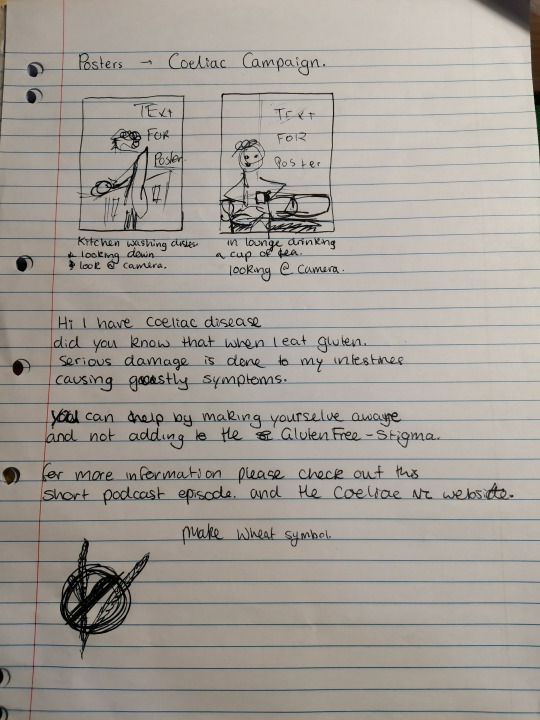 Posters → Coeliac Campaign.
TEXT
FOR
Poster
TEXT
FOR
Poster
Kitchen washing dishes
looking down
look @ camera.
in lounge drinking
a cup of tea.
looking @ camera.
Hi I have Coeliac disease
did you know that when I eat gluten.
Serious damage is done to my intestines
causing gastly symptoms.
You can help by making yourselve aware
and not adding to the Gluten Free-Stigma.
for more information please check out this
short podcast episode. and the Coeliac NZ website.
Make wheat symbol.